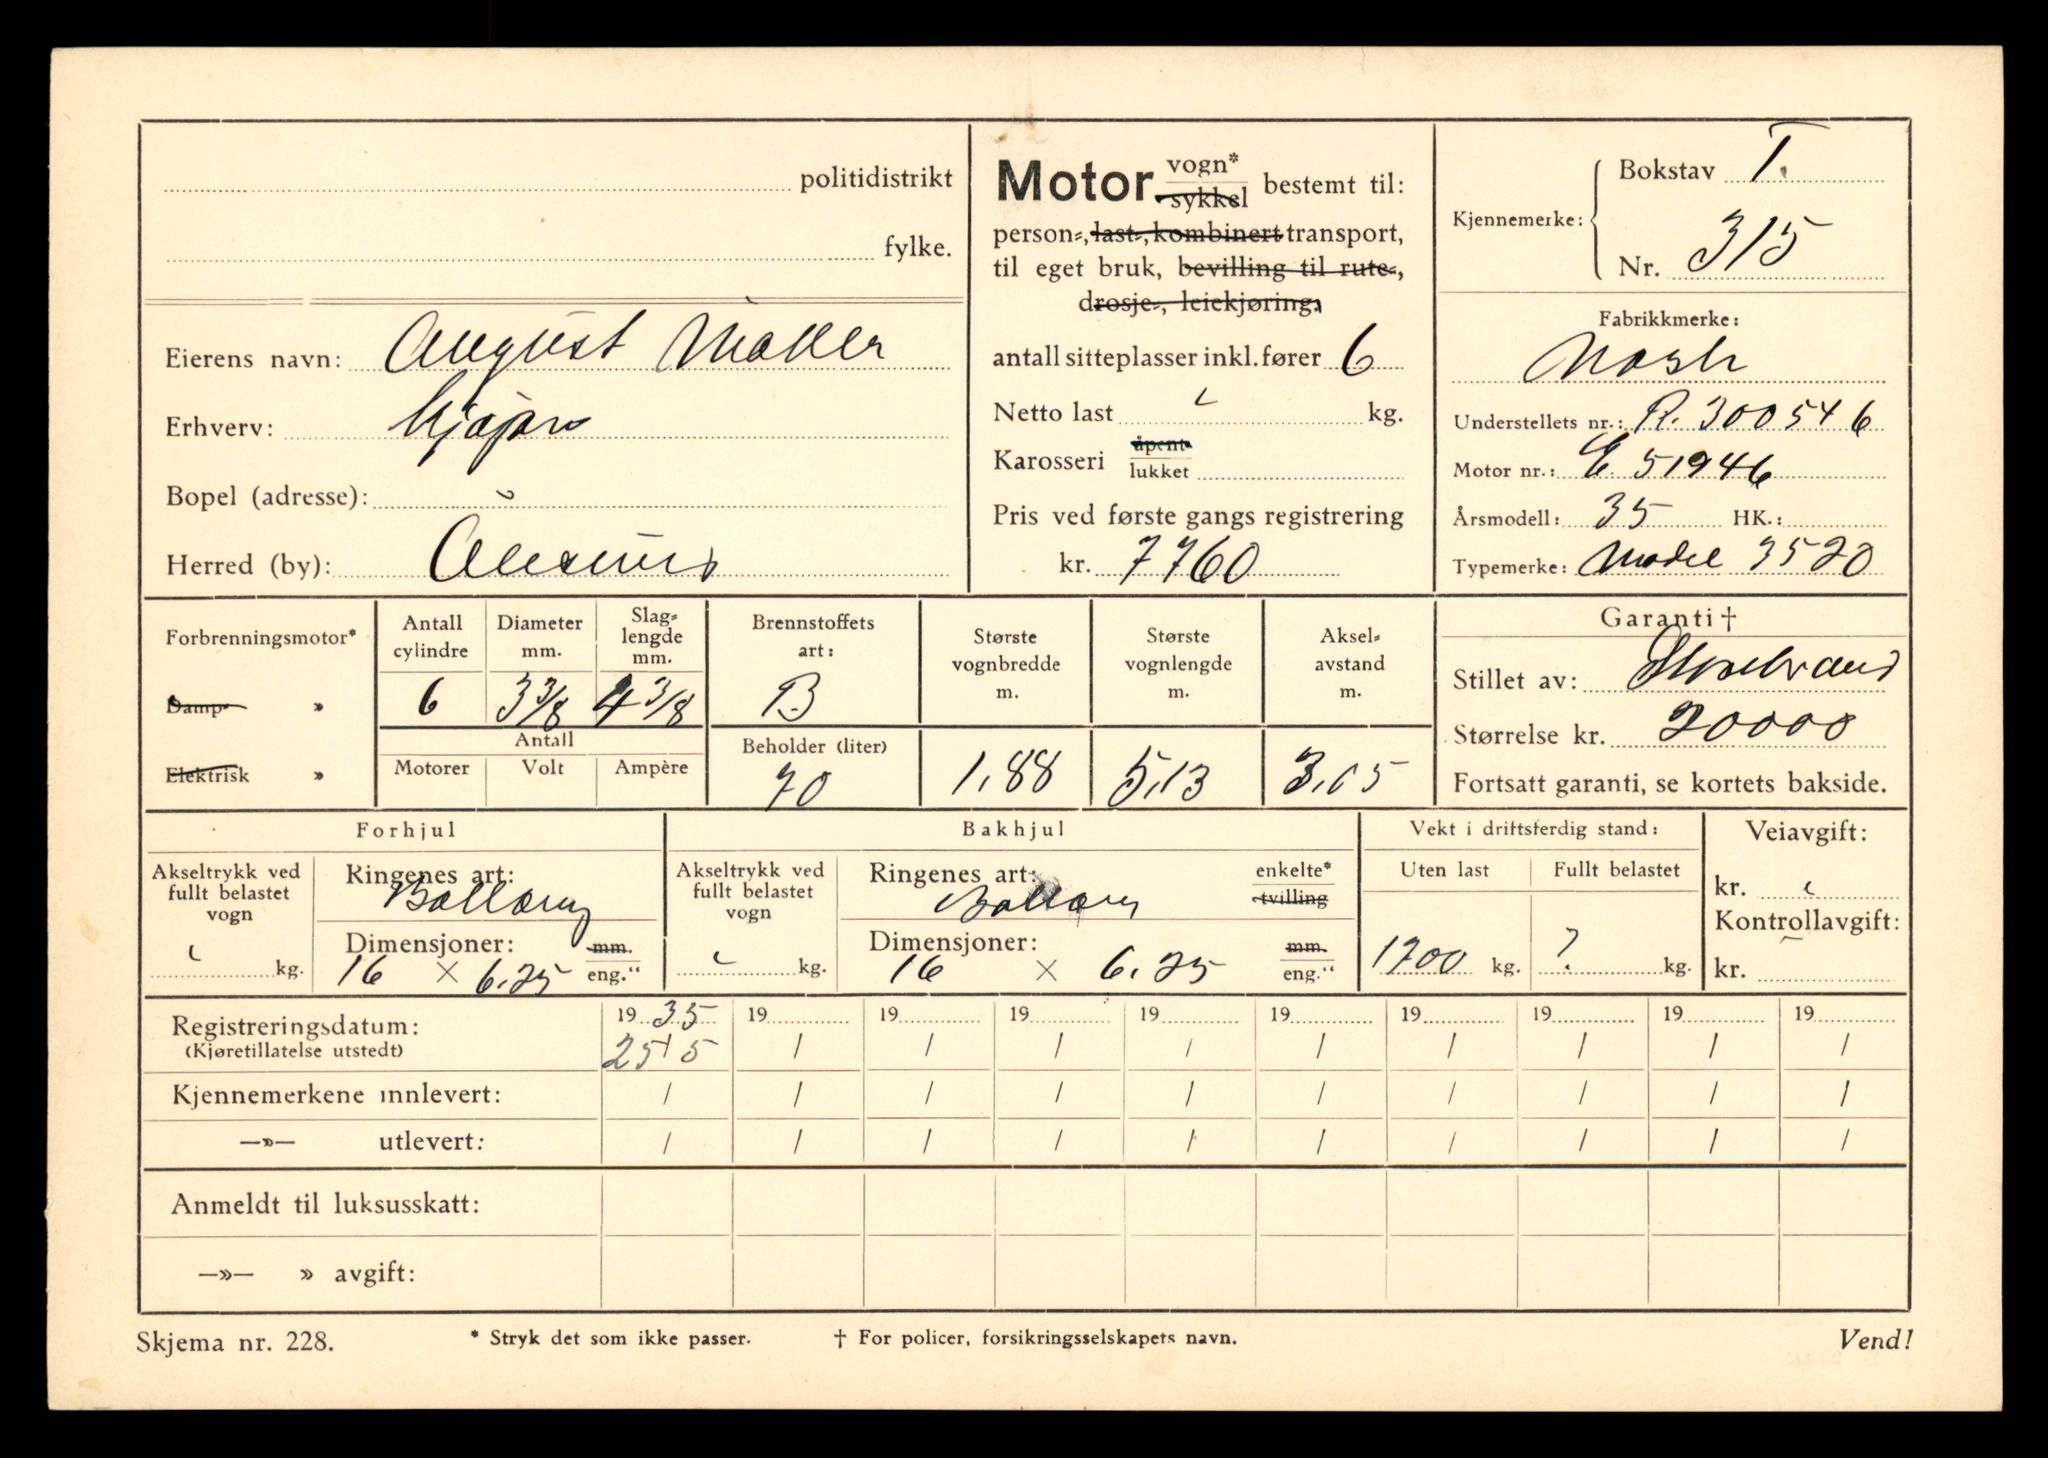 politidistrikt
fylke.
Eierens navn: August Møller
Erhverv:
Bopel (adresse):
Herred (by): Ålesund
Motor vogn* sykkel bestemt til:
person-, last-, kombinert transport,
til eget bruk, bevilling til rute-,
drosje-, leiekjøring.
antall sitteplasser inkl. fører 6
Netto last kg.
Karosseri åpent lukket
Pris ved første gangs registrering
kr. 7760
Kjennemerke:
Bokstav T.
Nr. 315
Fabrikkmerke:
Nash
Understellets nr.: R. 300546
Motor nr.: E 51946
Årsmodell: 35 HK.:
Typemerke: Model 3520
Forbrenningsmotor*
Damp- »
Elektrisk »
Antall cylindre
6
Diameter mm.
3 3/8
Slag-lengde mm.
4 3/8
Antall
Motorer Volt Ampère
Brennstoffets art:
B
Beholder (liter)
70
Største vognbredde m.
1,88
Største vognlengde m.
5,13
Aksel-avstand m.
3,05
Garanti †
Stillet av: Storebrand
Størrelse kr. 20000
Fortsatt garanti, se kortets bakside.
Forhjul
Akseltrykk ved fullt belastet vogn
kg.
Ringenes art:
Ballong
Dimensjoner: mm.
16 × 6.25 eng."
Bakhjul
Akseltrykk ved fullt belastet vogn
kg.
Ringenes art: enkelte* tvilling
Ballong
Dimensjoner: mm.
16 × 6.25 eng."
Vekt i driftsferdig stand:
Uten last Fullt belastet
1700 kg. ? kg.
Veiavgift:
kr.
Kontrollavgift:
kr.
Registreringsdatum: 19 35 19 19 19 19 19 19 19 19 19
(Kjøretillatelse utstedt) 25/5 / / / / / / / / /
Kjennemerkene innlevert: / / / / / / / / / /
—»— utlevert: / / / / / / / / / /
Anmeldt til luksusskatt:
—»— » avgift:
Skjema nr. 228. * Stryk det som ikke passer. † For policer, forsikringsselskapets navn. Vend!